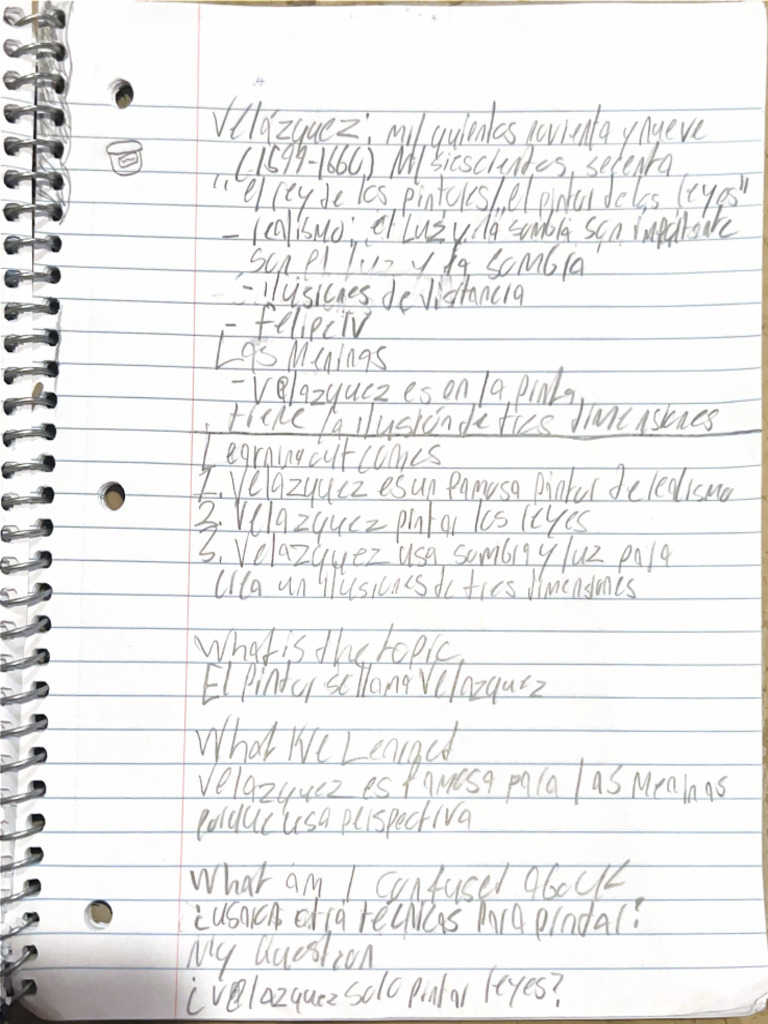 Velázquez: mil quientos novienta y nueve
(1599-1660) Mil siescientos, secenta
"el rey de los pintores/el pintor de los reyes"
- realismo: el luz y la sombra son importante
son el luz y la sombra
- ilusiones de distancia
- Felipe IV
Las Meninas
- Velazquez es en la pinta
. tiene la ilusión de tres dimensiones
Learning outcomes
1. Velázquez es un famosa pintor de realismo
2. Velázquez pintar los reyes
3. Velazquez usa sombra y luz para
crea un ilusiones de tres dimensiones
What is the topic
El pintor se llama Velazquez
What We Lerned
Velazquez es famosa para las Meninas
porque usa perspectiva
What am I confused about
otra técnicas para pintar?
My Question
¿Velazquez solo pintar reyes?